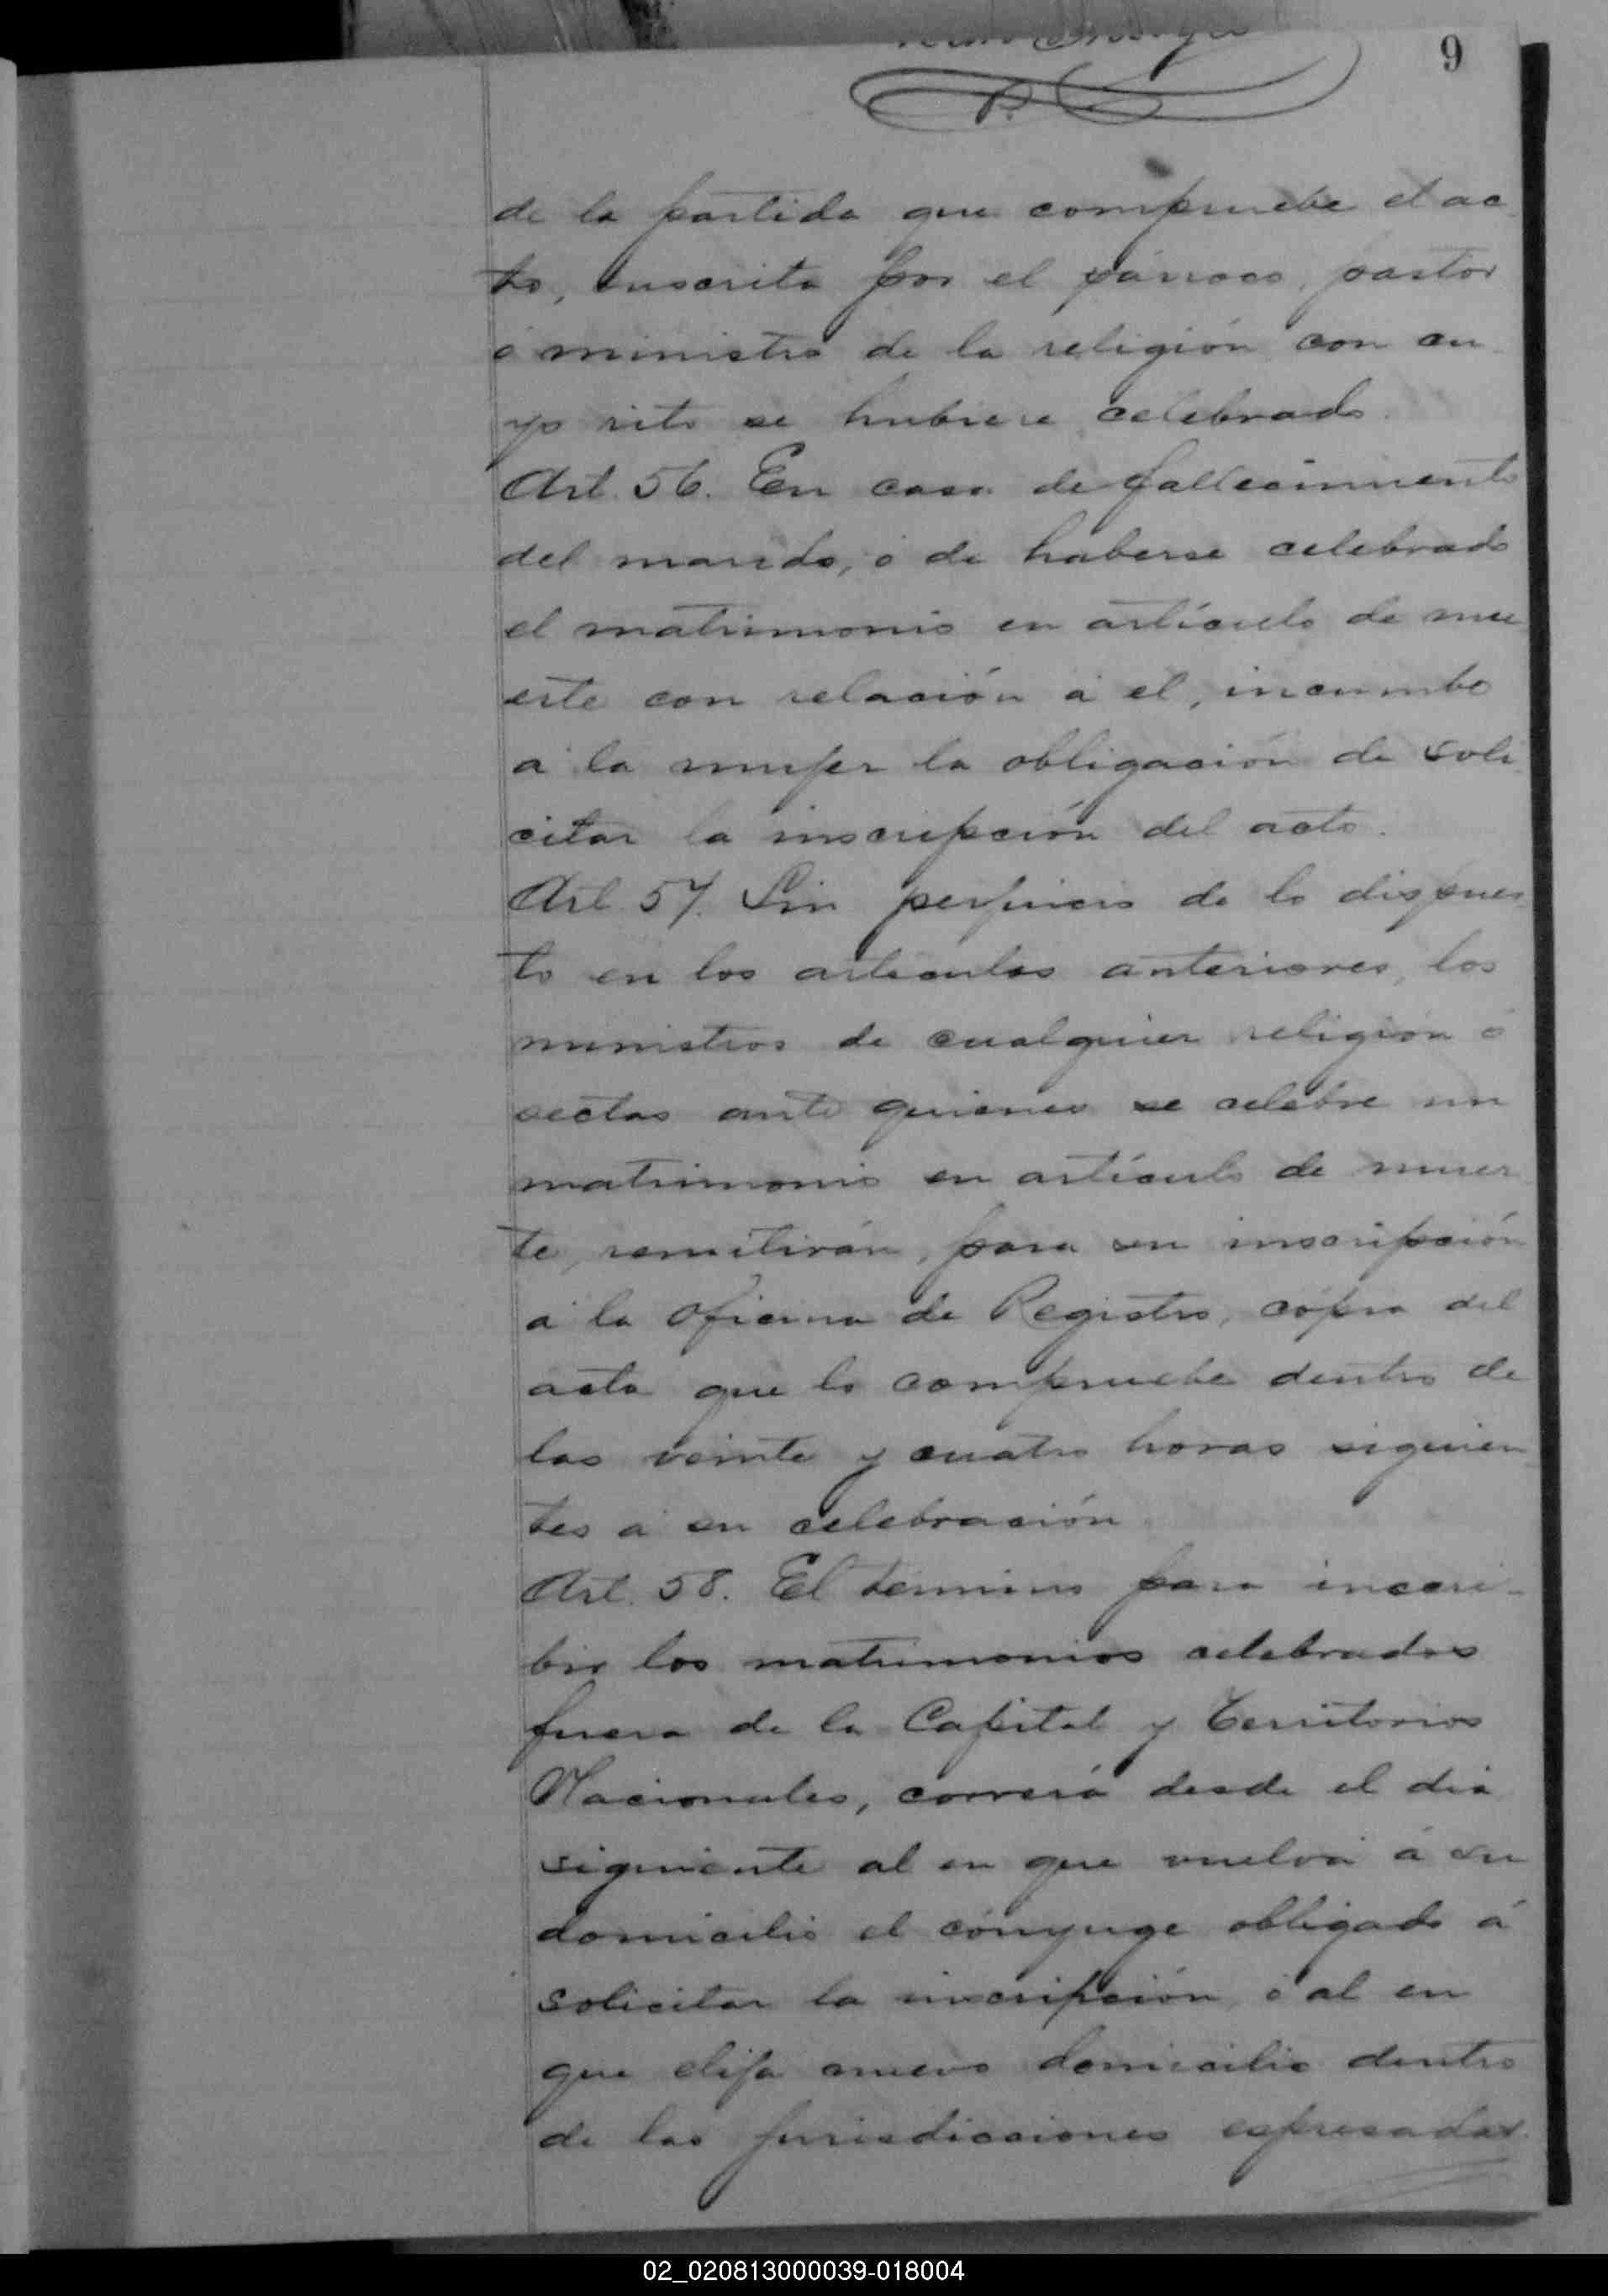 9
de la partida que compruebe el ac
to, suscrita por el párroco, pastor
ó ministro de la religión con cu
yo rito se hubiere celebrado.
Art. 56. En caso de fallecimiento
del marido, ó de haberse celebrado
el matrimonio en artículo de mu
erte con relación á el, incumbe
á la mujer la obligación de soli
citar la inscripción del acto.
Art. 57. Sin perjuicio de lo dispues
to en los artículos anteriores, los
ministros de cualquier religión ó
sectas ante quienes se celebre un
matrimonio en artículo de muer
te, remitirán, para su inscripción
á la Oficina de Registro, cópia del
acta que lo compruebe dentro de
las veinte y cuatro horas siguien
tes á su celebración.
Art. 58. El termino para inscri-
bir los matrimonios celebrados
fuera de la Capital y Territorios
Nacionales, correrá desde el dia
siguiente al en que vuelva á su
domicilio el cónyuge obligado á
solicitar la inscripción, ó al en
que elija nuevo domicilio dentro
de las jurisdicciones espresadas.
02_020813000039-018004